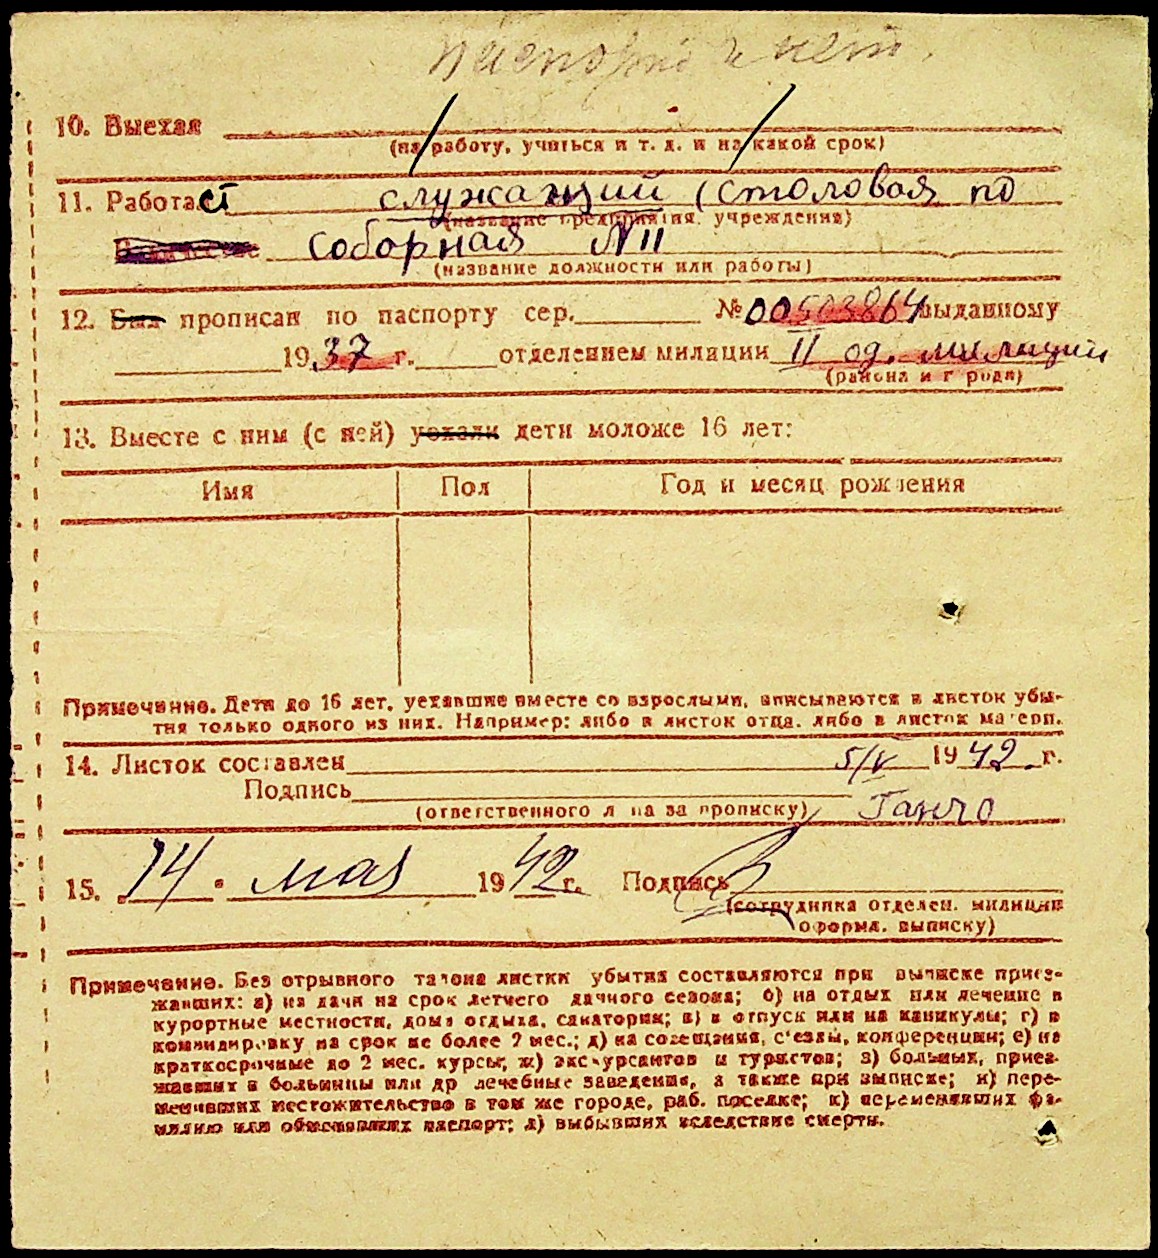 нет.
10. Выехал
(на работу, учиться и т. д. и на какой срок)
11. Работает служащий (столовая по
(название предприятия, учреждения)
Соборная N11
(название должности или работы)
12. Был прописан по паспорту сер. № 00503864 выданному
1937 г. отделением милиции II од. милиции
(района и города)
13. Вместе с ним (с ней) уехали дети моложе 16 лет:
Имя Пол Год и месяц рождения
Примечание. Дети до 16 лет, уехавшие вместе со взрослыми, вписываются в листок убы-
тия только одного из них. Например: либо в листок отца, либо в листок матери.
14. Листок составлен 5/V 1942 г.
Подпись
(ответственного лица за прописку) Ганчо
15. 14 • мая 1942 г. Подпись
(сотрудника отделен. милиции
оформл. выписку)
Примечание. Без отрывного талона листки убытия составляются при выписке приез-
жавших: а) на дачи на срок летнего дачного сезона; б) на отдых или лечение в
курортные местности, дома отдыха, санатории; в) в отпуск или на каникулы; г) в
командировку на срок не более 2 мес.; д) на совещания, с'езды, конференции; е) на
краткосрочные до 2 мес. курсы; ж) экскурсантов и туристов; з) больных, приез-
жавших в больницы или др лечебные заведения, а также при выписке; и) пере-
менивших местожительство в том же городе, раб. поселке; к) переменивших фа-
милию или обменявших паспорт; л) выбывших вследствие смерти.